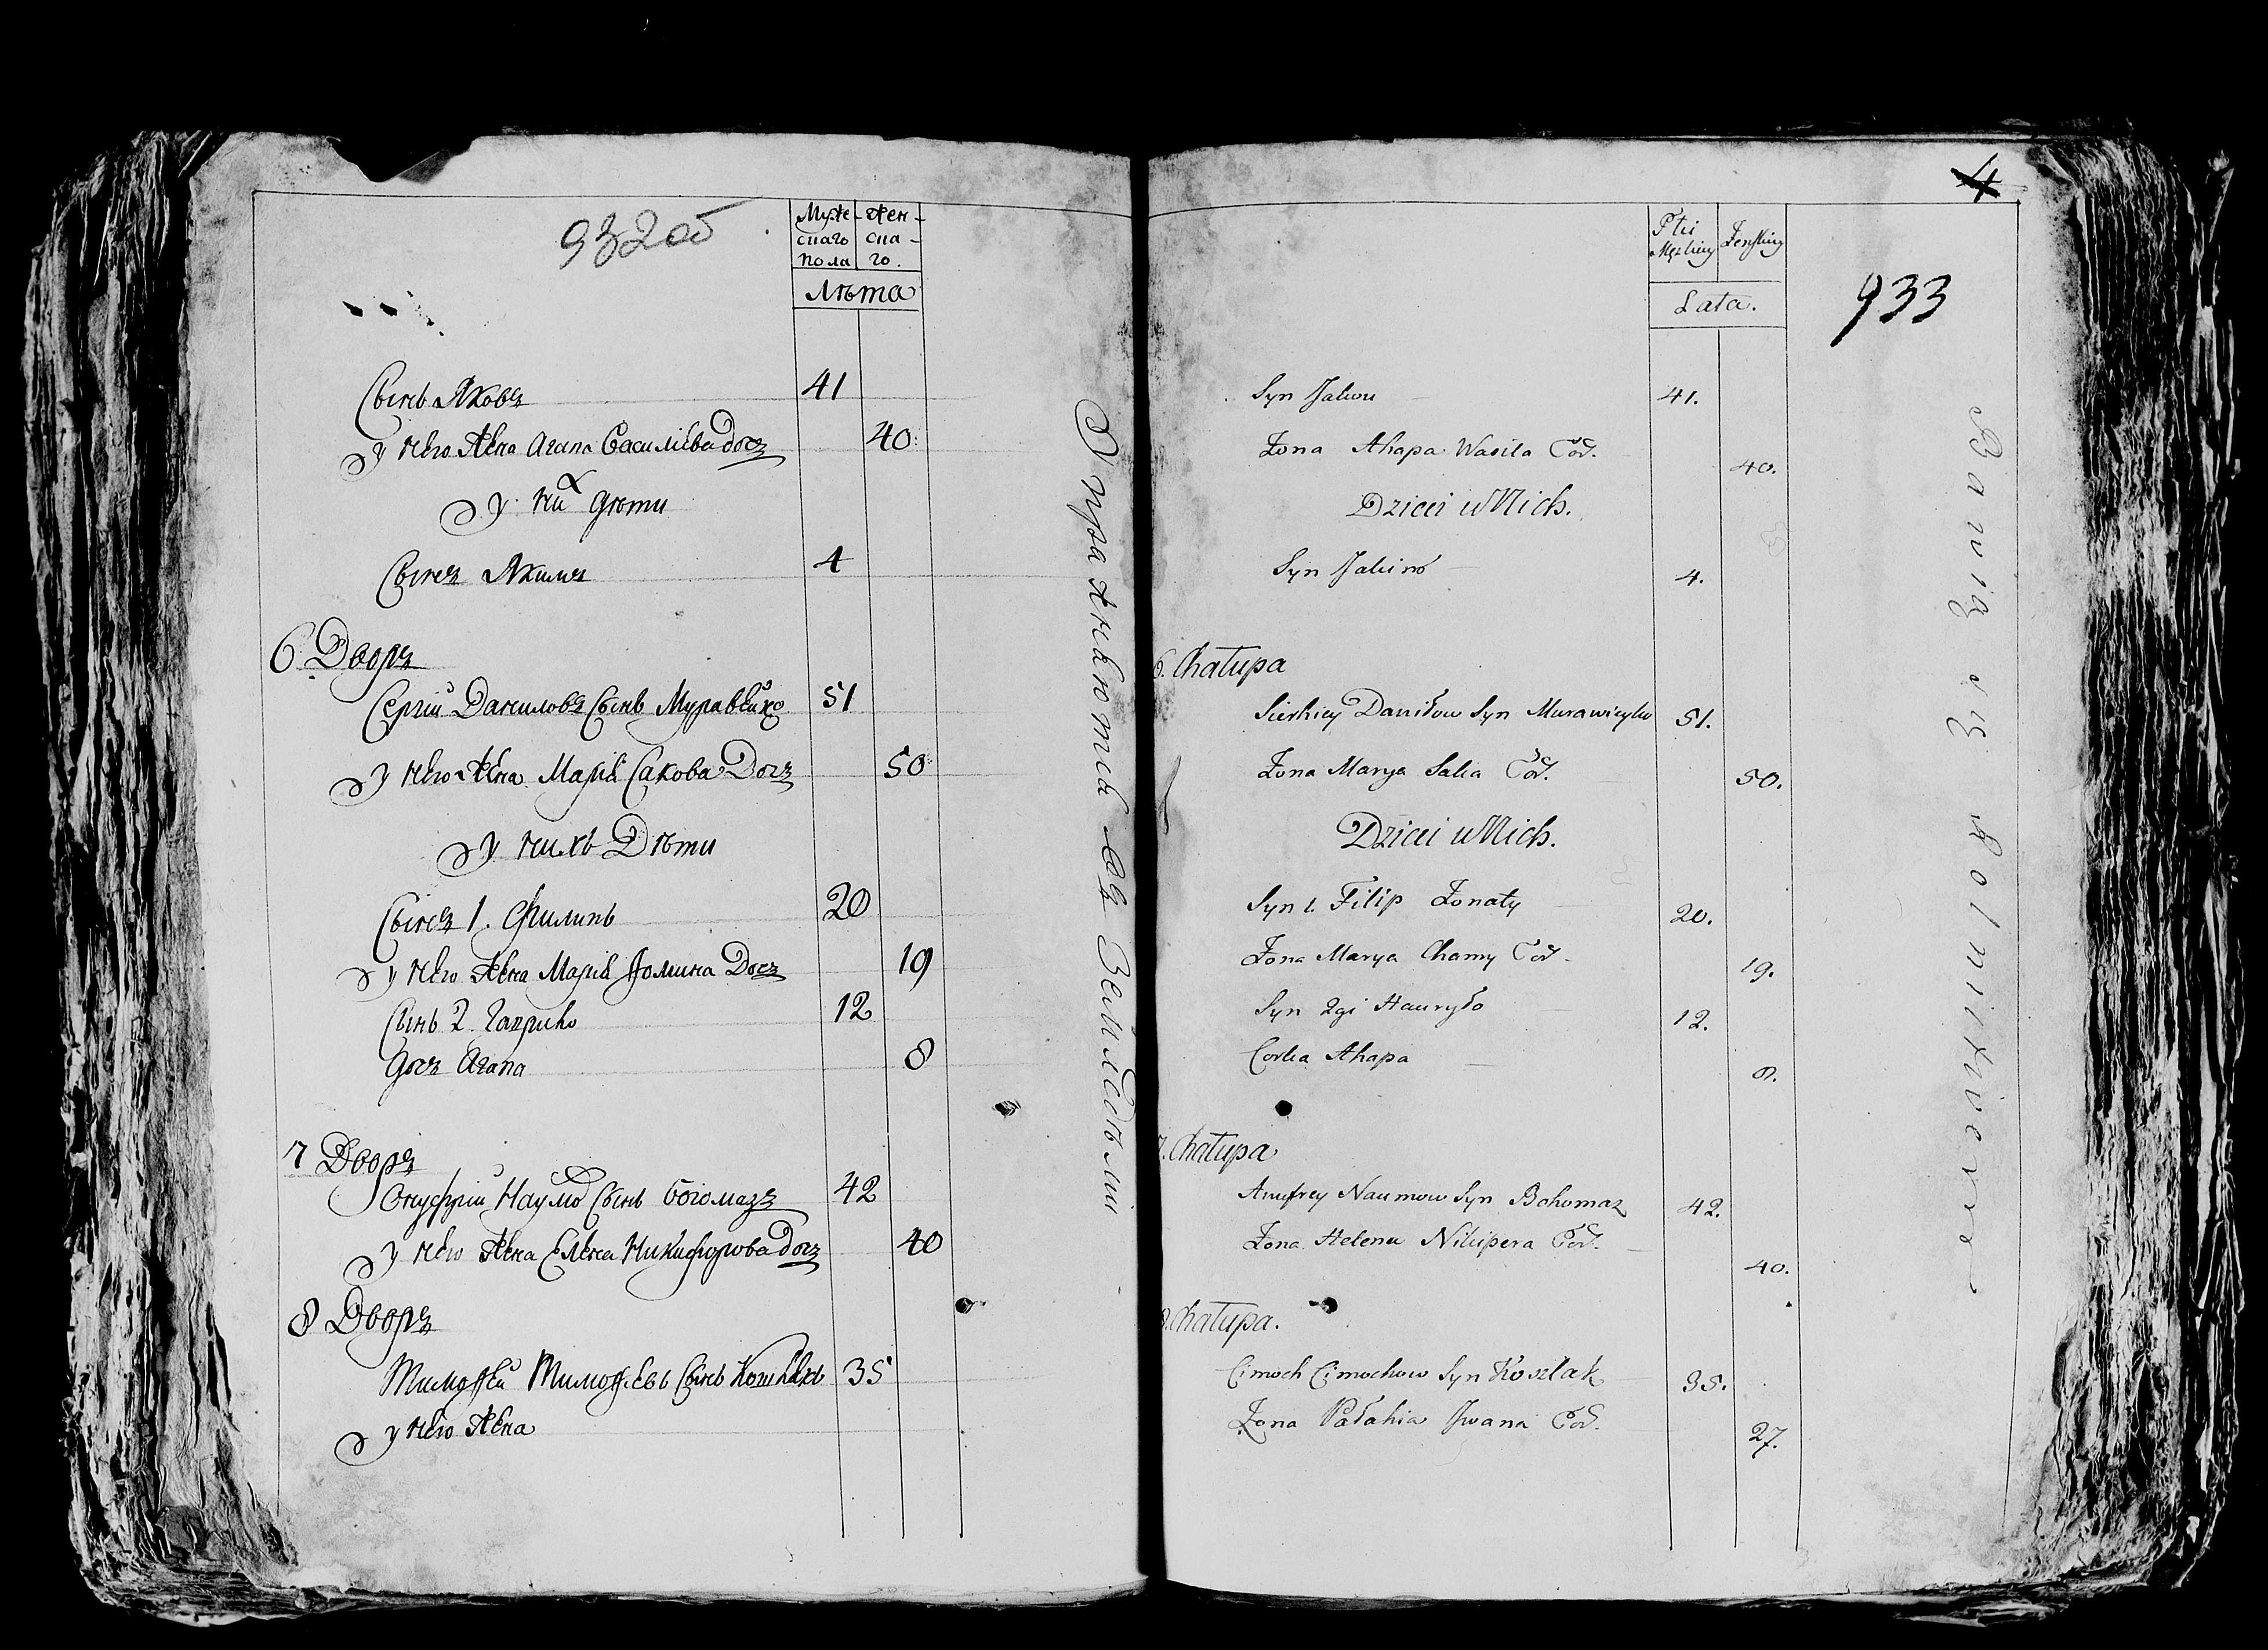 932об
Муже- Жен-
скаго ска-
пола го.
Лѣта
Сынь Яковъ 41
У него Жена Агапа Василева Доч 40
У них дѣти
Сынъ Якимъ 4
6 Дворъ
Сергій Даниловъ Сынь Муравейко 51
У него Жена Марія Сакова Дочъ 50
У нихь Дѣти
Сынъ 1. Филипь 20
У него Жена Марія Фомина Дочъ 19
Сынь 2. Гаврило 12
Дочъ Агапа 8
7 Дворъ
Онуфрій Наумо Сынь Богомазъ 42
У него Жена Елена Никифорова Дочъ 40
8 Дворъ
Тимофей Тимофѣевь Сынь Кошлякь 35
У него Жена
Упражняются въ Земледѣліи
4
933
Płci Męzkiey Zenskiey
Lata.
Syn Jakow 41.
Zona Ahapa Wasila Cór. 40.
Dzieci u Nich.
Syn Jakim 4.
6. Chatupa
Sierhiey Daniłow Syn Murawieyko 51.
Zona Marya Saka Cór. 50.
Dzieci u Nich.
Syn 1. Filip Zonaty 20.
Zona Marya Chomy Cór. 19.
Syn 2gi Hauryło 12.
Corka Ahapa 8.
7. Chatupa
Anufrey Naumow Syn Bohomaz 42.
Zona Helena Nikipera Cór. 40.
8. Chatupa.
Cimoch Cimochow Syn Koszlak 35.
Zona Pałahia Jwana Cór. 27.
Bawią się Rolnictwem